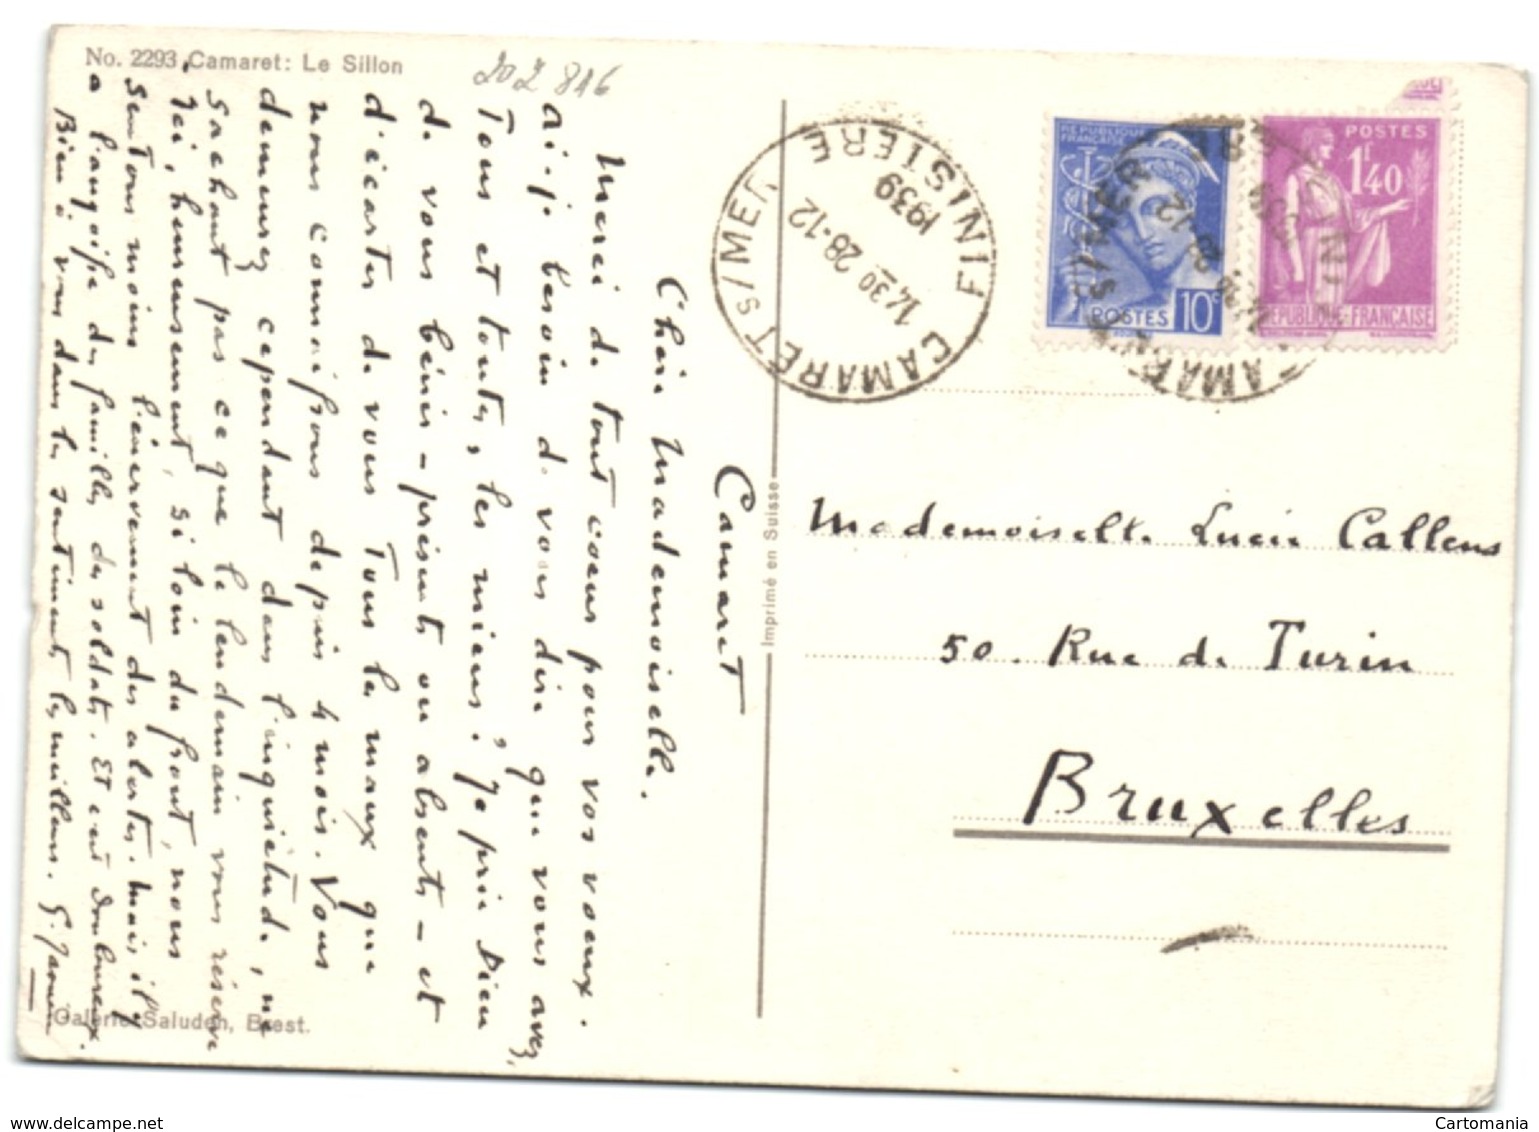 No. 2293 Camaret: Le Sillon
202 816
Camaret
Chère Mademoiselle.
Merci de tout coeur pour vos voeux.
ai-je besoin de vous dire que vous avez,
Tous et toutes, les miens? Je prie Dieu
de vous bénir - présents ou absents - et
d'écarter de vous Tous les maux que
nous connaissons depuis 4 mois. Vous
demeurez cependant dans l'inquiétude, ne
sachant pas ce que le lendemain vous réserve
Ici, heureusement, si loin du front, nous
sentons moins l'énervement des alertes. Mais il y
a l'angoisse des familles des soldats. Et c'est douloureux.
Bien à vous dans les sentiments les meilleurs. G.
Galerie Saluden, Brest.
Imprimé en Suisse
CAMARET S/MER
14 30 28-12
1939
FINISTERE
REPUBLIQUE FRANÇAISE
POSTES 10c
POSTES
1f40
REPUBLIQUE-FRANÇAISE
Mademoiselle Lucie Callens
50. Rue de Turin
Bruxelles
delcampe.net
Cartomania